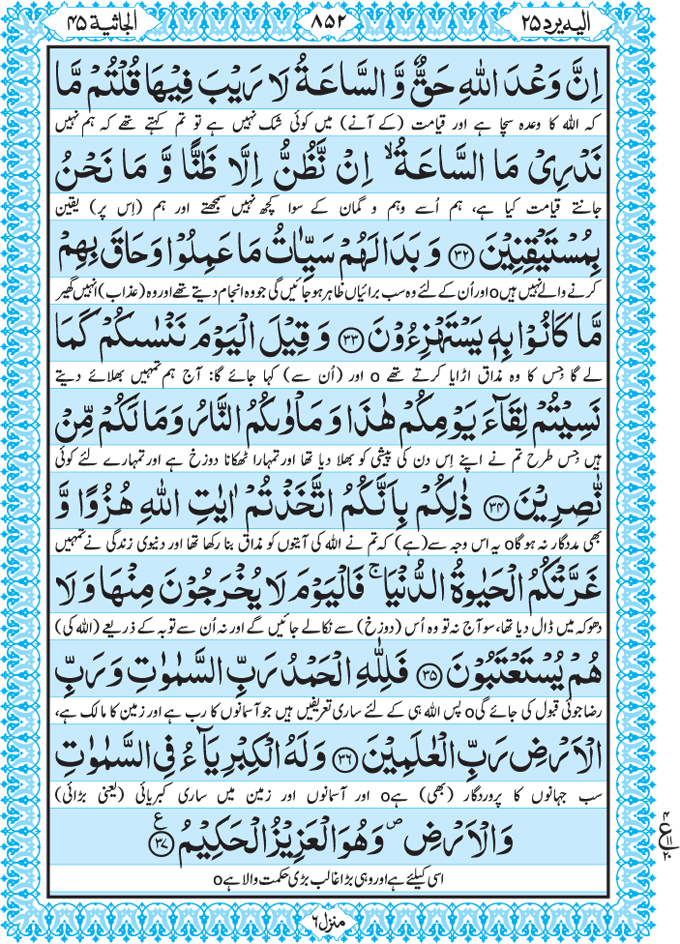 الیه یرد ۲۵
۸۵۲
الجاثیة ۴۵
اِنَّ وَعْدَ اللّٰهِ حَقٌّ وَّ السَّاعَةُ لَا رَیْبَ فِیْهَا قُلْتُمْ مَّا
کہ اللہ کا وعدہ سچا ہے اور قیامت (کے آنے) میں کوئی شک نہیں ہے تو تم کہتے تھے کہ ہم نہیں
نَدْرِیْ مَا السَّاعَةُ ۙ اِنْ نَّظُنُّ اِلَّا ظَنًّا وَّ مَا نَحْنُ
جانتے قیامت کیا ہے، ہم اُسے وہم و گمان کے سوا کچھ نہیں سمجھتے اور ہم (اِس پر) یقین
بِمُسْتَیْقِنِیْنَ ۳۲ وَ بَدَا لَهُمْ سَیِّاٰتُ مَا عَمِلُوْا وَ حَاقَ بِهِمْ
کرنے والے نہیں ہیں o اور اُن کے لئے وہ سب برائیاں ظاہر ہو جائیں گی جو وہ انجام دیتے تھے اور وہ (عذاب) انہیں گھیر
مَّا کَانُوْا بِهٖ یَسْتَهْزِءُوْنَ ۳۳ وَ قِیْلَ الْیَوْمَ نَنْسٰىكُمْ کَمَا
لے گا جِس کا وہ مذاق اڑایا کرتے تھے o اور (اُن سے) کہا جائے گا: آج ہم تمہیں بھلائے دیتے
نَسِیْتُمْ لِقَآءَ یَوْمِكُمْ هٰذَا وَ مَاْوٰىكُمُ النَّارُ وَ مَا لَكُمْ مِّنْ
ہیں جِس طرح تم نے اپنے اِس دن کی پیشی کو بھلا دیا تھا اور تمہارا ٹھکانا دوزخ ہے اور تمہارے لئے کوئی
نّٰصِرِیْنَ ۳۴ ذٰلِكُمْ بِاَنَّكُمُ اتَّخَذْتُمْ اٰیٰتِ اللّٰهِ هُزُوًا وَّ
بھی مددگار نہ ہو گا o یہ اس وجہ سے (ہے) کہ تم نے اللہ کی آیتوں کو مذاق بنا رکھا تھا اور دنیوی زندگی نے تمہیں
غَرَّتْكُمُ الْحَیٰوةُ الدُّنْیَا ۚ فَالْیَوْمَ لَا یُخْرَجُوْنَ مِنْهَا وَ لَا
دھوکہ میں ڈال دیا تھا، سو آج نہ تو وہ اُس (دوزخ) سے نکالے جائیں گے اور نہ اُن سے توبہ کے ذریعے (اللہ کی)
هُمْ یُسْتَعْتَبُوْنَ ۳۵ فَلِلّٰهِ الْحَمْدُ رَبِّ السَّمٰوٰتِ وَ رَبِّ
رضا جوئی قبول کی جائے گی o پس اللہ ہی کے لئے ساری تعریفیں ہیں جو آسمانوں کا رب ہے اور زمین کا مالک ہے،
الْاَرْضِ رَبِّ الْعٰلَمِیْنَ ۳۶ وَ لَهُ الْكِبْرِیَآءُ فِی السَّمٰوٰتِ
سب جہانوں کا پروردگار (بھی) ہے o اور آسمانوں اور زمین میں ساری کبریائی (یعنی بڑائی)
وَ الْاَرْضِ ۪ وَ هُوَ الْعَزِیْزُ الْحَكِیْمُ ۳۷ ع
اسی کیلئے ہے اور وہی بڑا غالب بڑی حکمت والا ہے o
منزل ۶